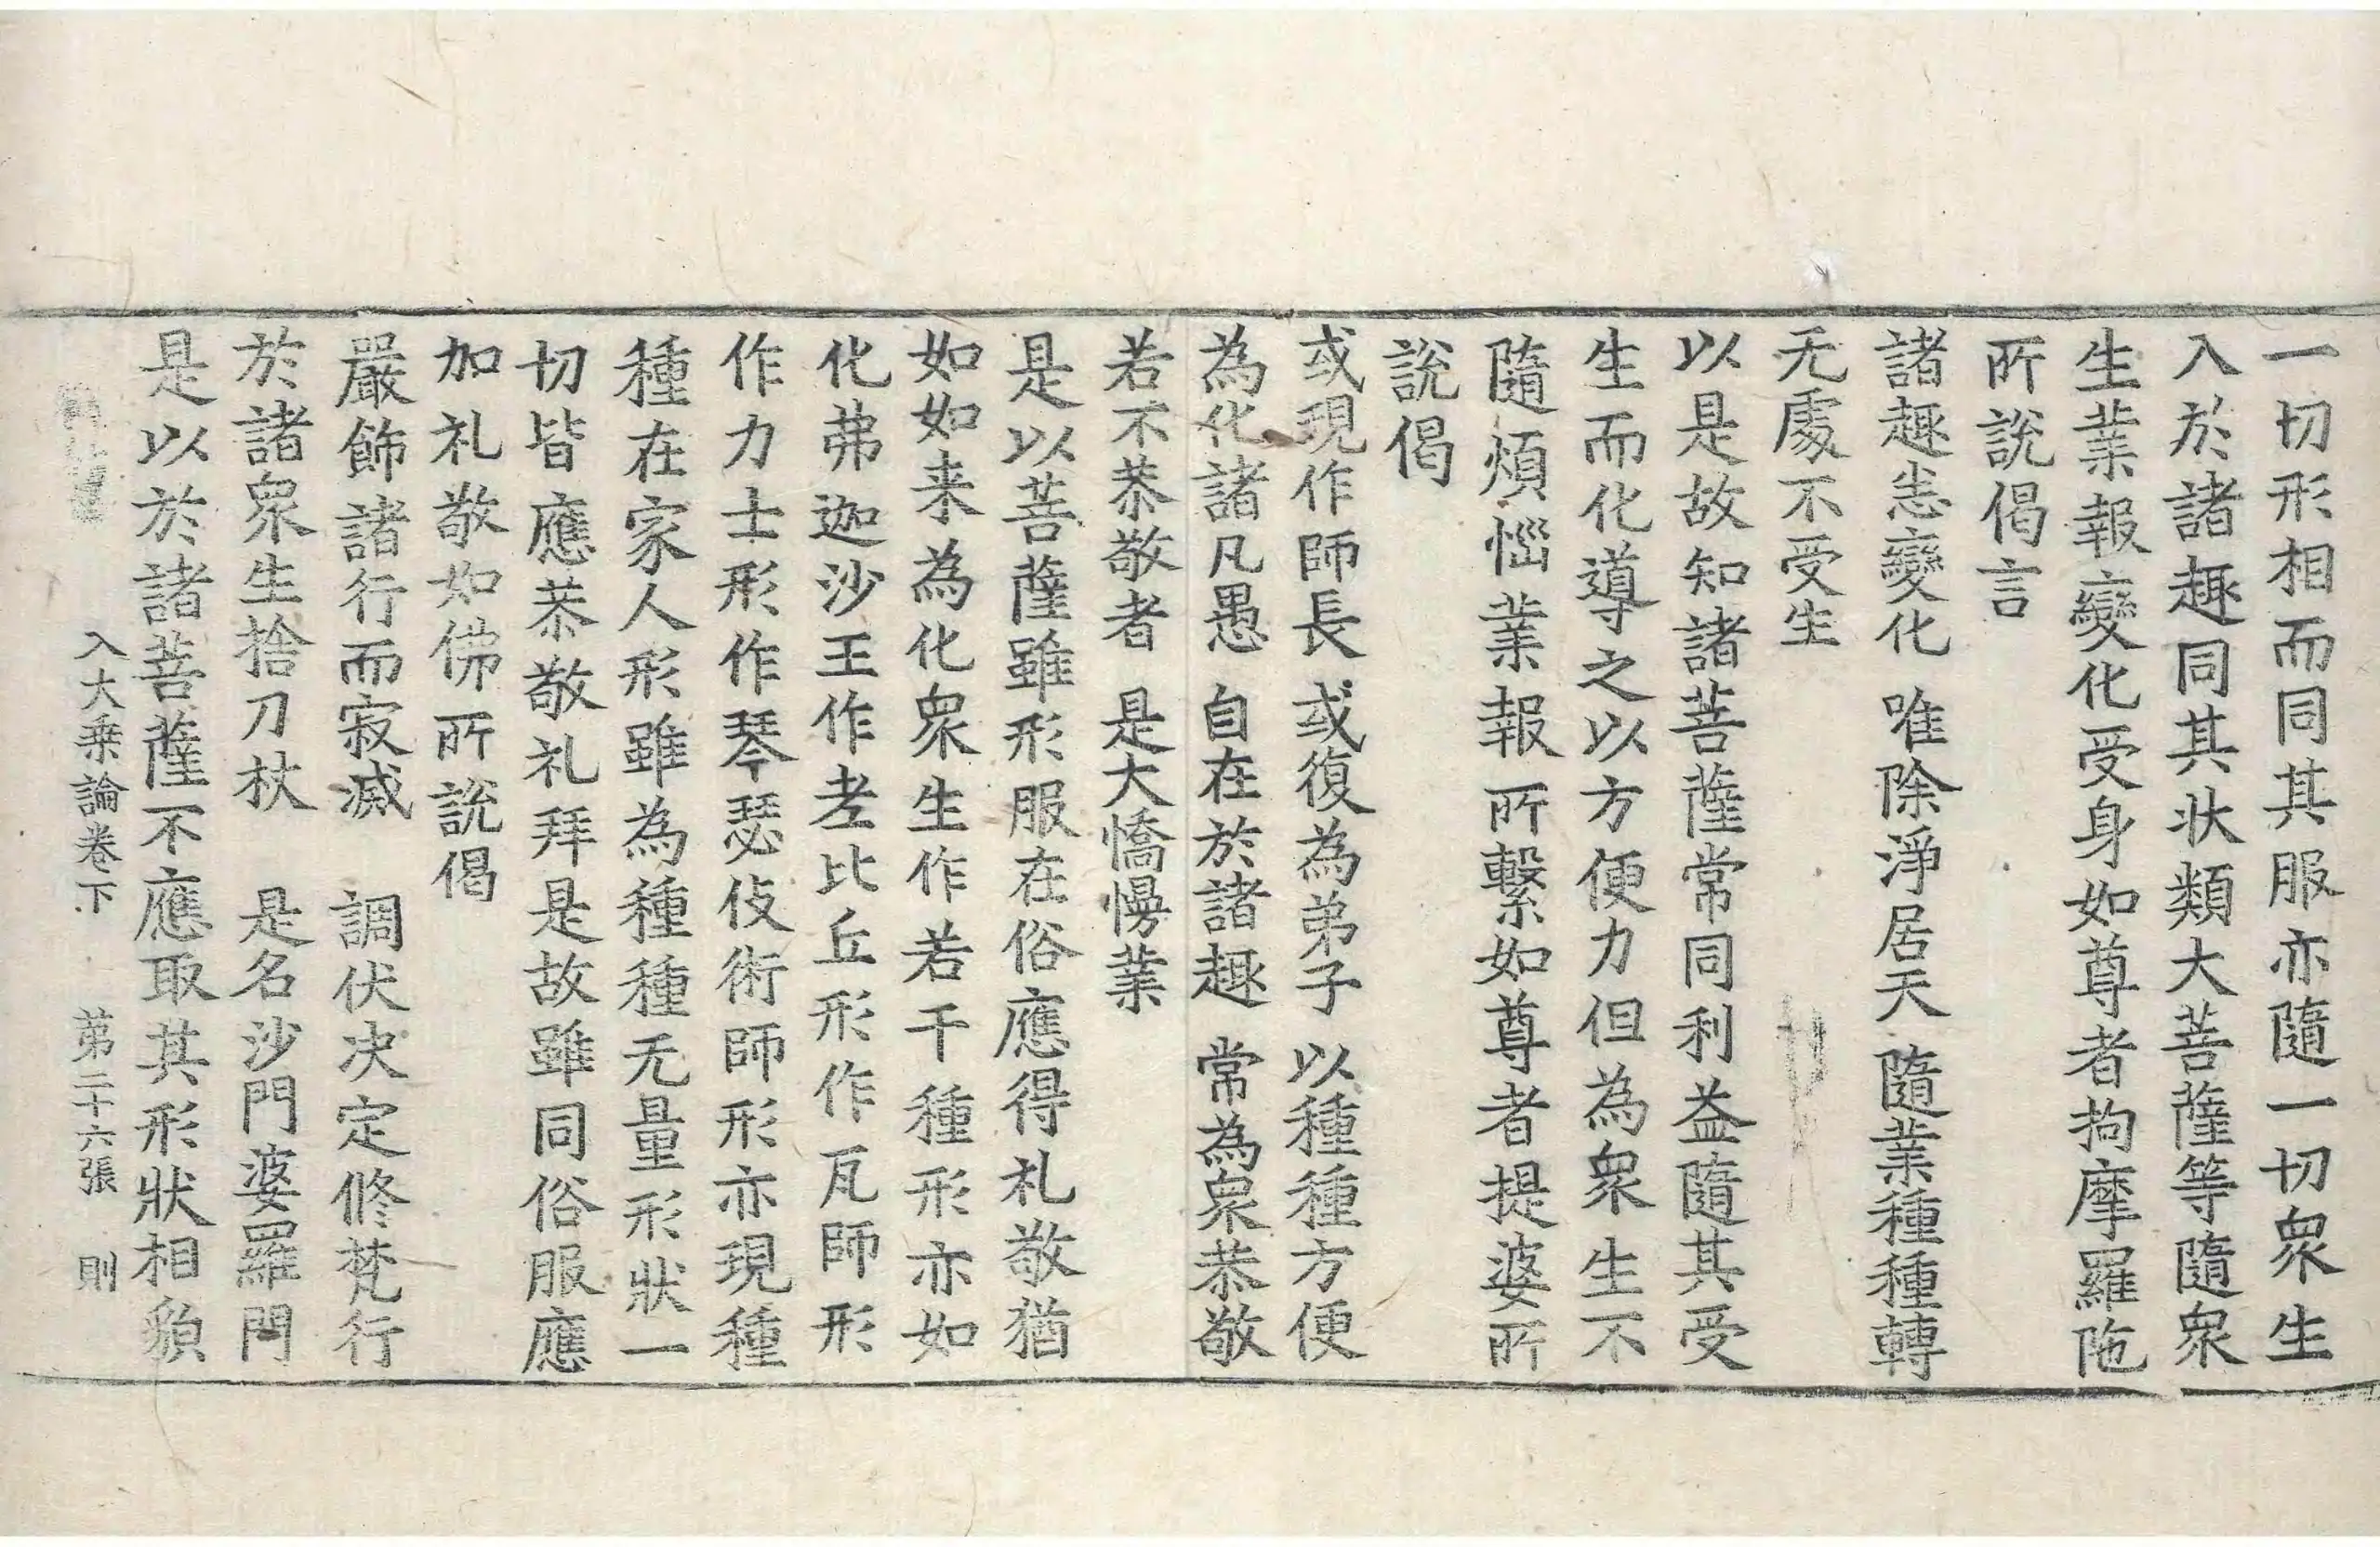 一切形相而同其服亦隨一切衆生
入於諸趣同其状類大菩薩等隨衆
生業報變化受身如尊者拘摩羅陁
所說偈言
諸趣恙變化　唯除淨居天　隨業種種轉
无處不受生
以是故知諸菩薩常同利益隨其受
生而化導之以方便力但為衆生不
隨煩惱業報所繫如尊者提婆所
說偈
或現作師長　或復為弟子　以種種方便
為化諸凡愚　自在於諸趣　常為衆恭敬
若不恭敬者　是大憍慢業
是以菩薩雖形服在俗應得礼敬猶
如如来為化衆生作若干種形亦如
化弗迦沙王作老比丘形作瓦師形
作力士形作琴瑟伎術師形亦現種
種在家人形雖為種種无量形狀一
切皆應恭敬礼拜是故雖同俗服應
加礼敬如佛所說偈
嚴飾諸行而寂滅　調伏决定修梵行
於諸衆生捨刀杖　是名沙門婆羅門
是以於諸菩薩不應取其形狀相貌
入大乗論卷下　第二十六張　則